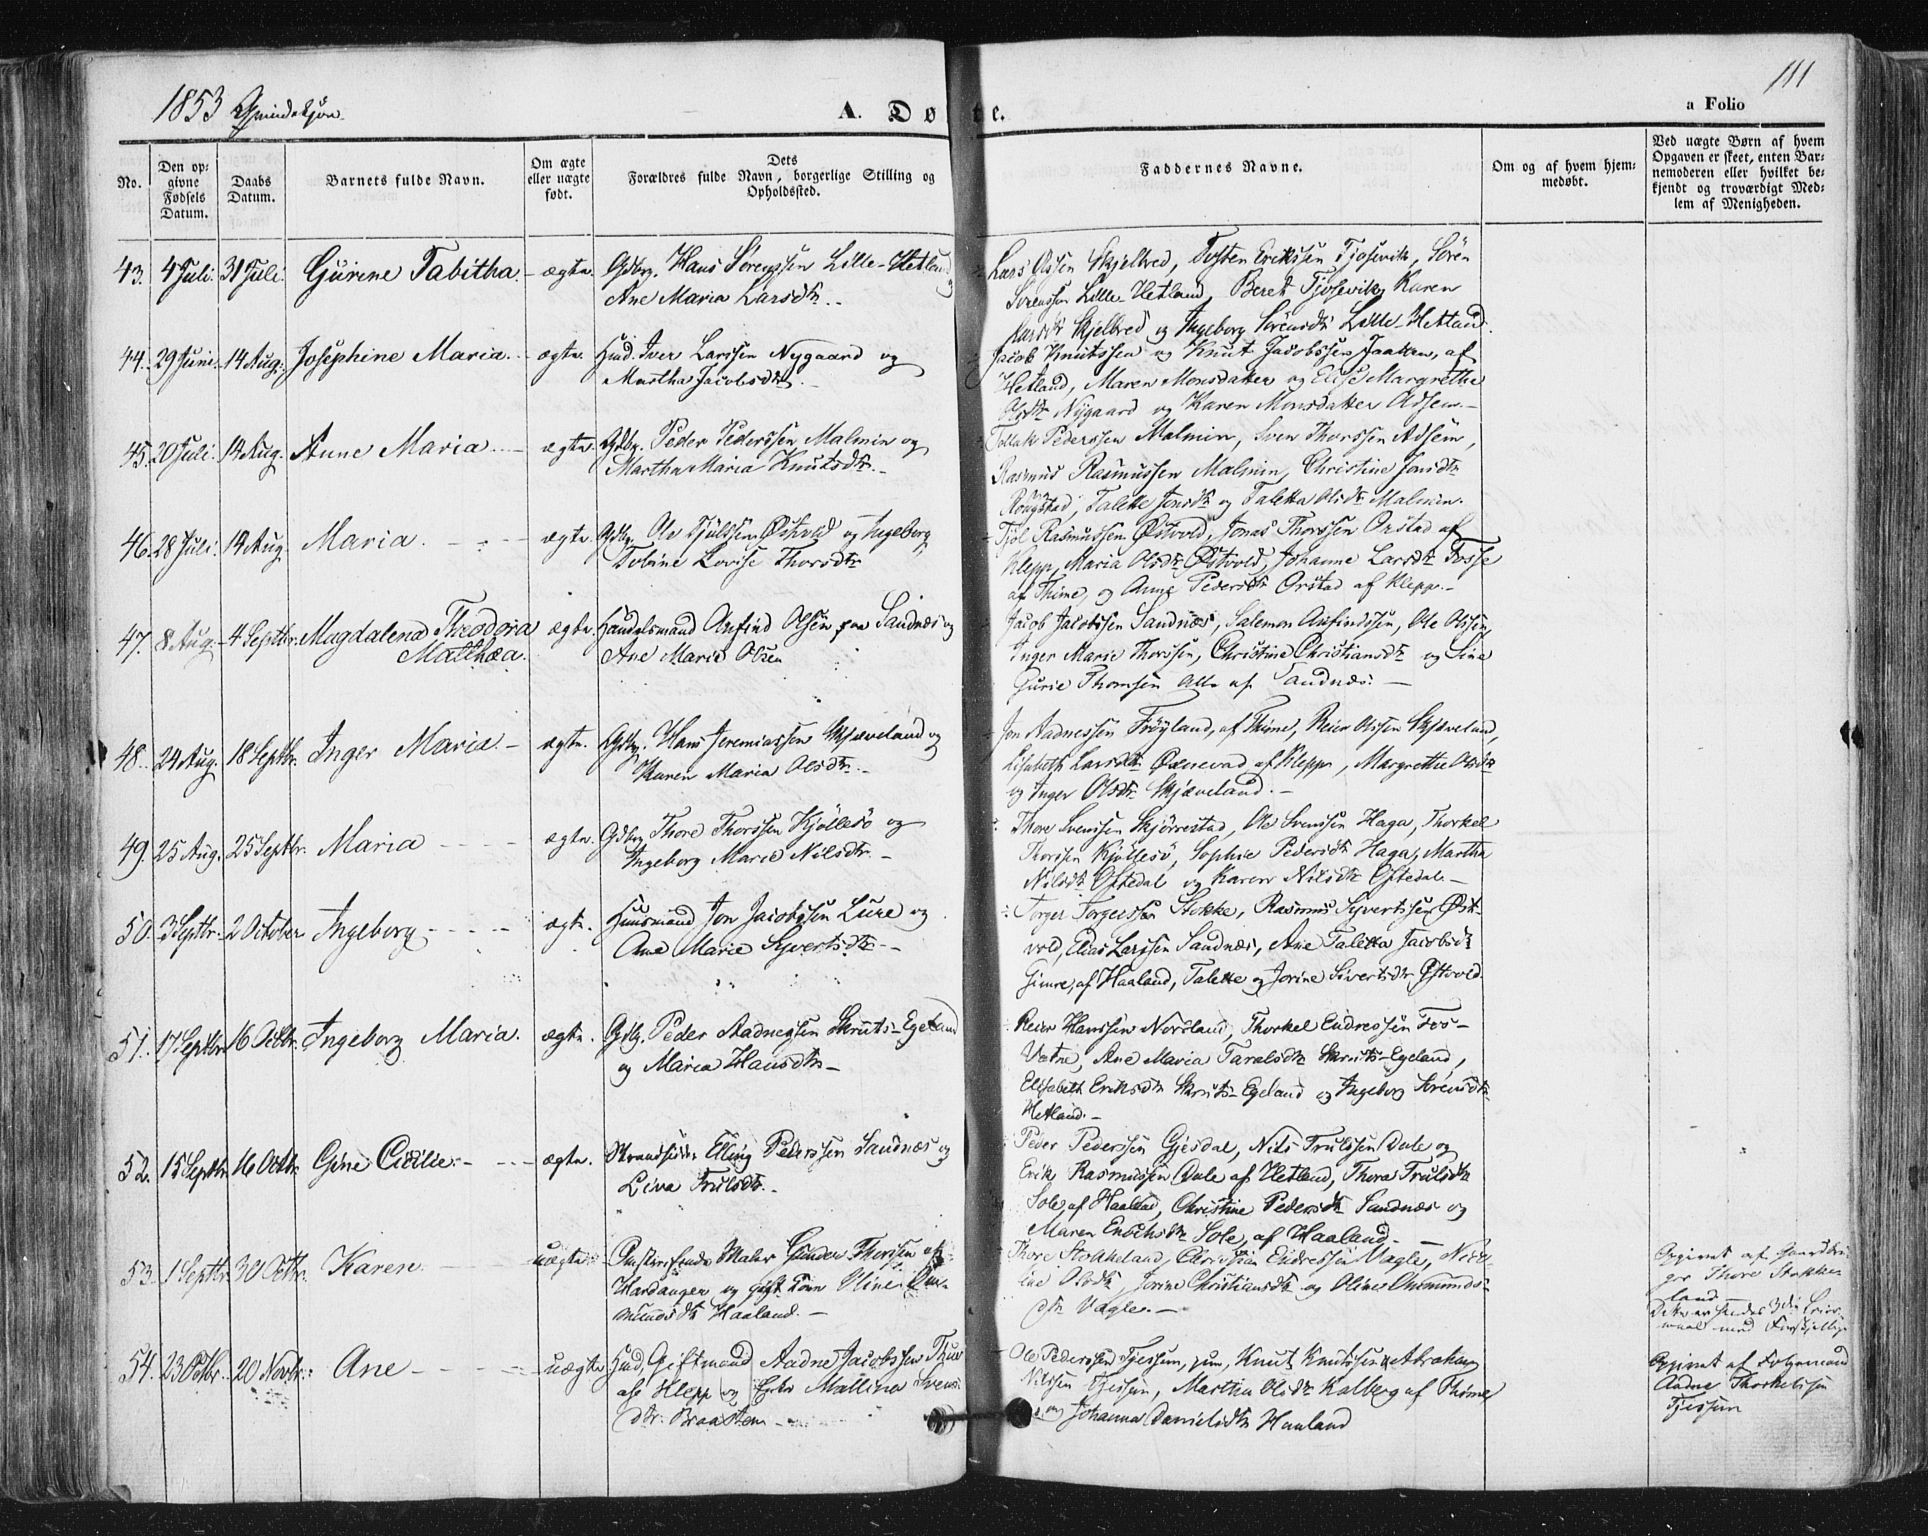 1853 Qvindekjøn.
A. Døbte.
111
a Folio
No.
Den opgivne Fødsels Datum.
Daabs Datum.
Barnets fulde Navn.
Om ægte eller uægte født.
Dets Forældres fulde Navn, borgerlige Stilling og Opholdssted.
Faddernes Navne.
Om og af hvem hjemmedøbt.
Ved uægte Børn af hvem Opgaven er skeet, enten Barnemoderen eller hvilket bekjendt og troværdigt Medlem af Menigheden.
43. 4 Juli. 31 Juli. Gurine Tabitha. ægte. Gdbrg. Hans Sørenssen Lille-Hetland og
Ane Maria Larsdtr.
Lars Olssen Skjelbred, Tosten Erikssen Tjosevik, Søren
Sørenssen Lille Hetland, Beret Tjosevik, Karen
Larsdtr Skjelbred og Ingeborg Sørensdtr Lille-Hetland.
44. 29 Juni. 14 Aug. Josephine Maria. ægte. Huusmd. Iver Larssen Nygaard og
Martha Jacobsdtr.
Jacob Knutssen og Knut Jacobssen Jaatten, af
Hetland, Maren Monsdatter og Elise Margrethe
Olsdtr Nygaard og Karen Monsdatter Adsem.
45. 20 Juli. 14 Aug. Anne Maria ægte. Gdbrg. Peder Pederssen Malmin og
Martha Maria Knutsdtr.
Tollak Pederssen Malmin, Sven Thorssen Adsem,
Rasmus Rasmussen Malmin, Christine Jonsdtr
Rongstad, Talette Jonsdtr og Taletta Olsdtr Malmin.
46. 28 Juli. 14 Aug. Maria. ægte. Gdbrg. Ole Tjølssen Østvold og Ingeborg
Tobine Lovise Thorsdtr
Tjøl Rasmussen Østvold, Jonas Thorssen Orstad af
Klepp, Maria Olsdtr Østvold, Johanne Larsdtr Fosse
af Thime, og Anne Pedersdtr Orstad af Klepp.
47. 8 Aug. 4 Septbr. Magdalena Theodora
Mathea. ægte. Handelsmand Anfind Olsen paa Sandnæs og
Ane Marie Olsen
Jacob Jacobssen Sandnæs, Salemon Anfindssen, Ole Olssen,
Inger Marie Thorssen, Christine Christiansdtr og Sine
Gurie Thomsen Alle af Sandnæs.
48. 24 Aug. 18 Septbr. Inger Maria ægte. Gdbrg. Hans Jeremiassen Skjæveland og
Karen Maria Olsdtr.
Jon Aadnessen Frøyland, af Thime, Reier Olssen Skjæveland,
Lisabeth Larsdtr Øxnevad af Klepp, Margrethe Olsdtr
og Inger Olsdtr Skjæveland.
49. 25 Aug. 25 Septbr. Maria ægte. Gdbrg Thore Thorssen Kjøllesø og
Ingeborg Marie Nilsdtr.
Thore Svenssen Skjørrestad, Ole Svenssen Haga, Thorkel
Thorssen Kjøllesø, Sophie Pedersdtr Haga, Martha
Nilsdtr Oftedal og Karen Nilsdtr Oftedal.
50. 3 Septbr. 2 October Ingeborg ægte. Huusmand Jon Jacobssen Lure og
Ane Marie Syvertsdtr.
Torger Torgerssen Stokke, Rasmus Syvertssen Øst-
vold, Elias Larssen Sandnæs, Ane Taletta Jacobsdtr
Gimre, af Haaland, Talette og Jorine Sivertsdtr Østvold.
51. 17 Septbr 16 Octbr. Ingeborg Maria. ægte. Gdbg. Peder Aadnessen Skruts-Egeland
og Maria Hansdtr.
Reier Hanssen Norland, Thorkel Endressen Fos-
Vatne, Ane Maria Taralsdtr Skruts-Egeland,
Elisabeth Eriksdtr Skruts-Egeland og Ingeborg Sørensdtr
Hetland.
52. 15 Septbr 16 Octbr. Gine Cicilie. ægte. Strandsidder Elling Pederssen Sandnæs og
Liva Trulsdtr.
Peder Pederssen Gjesdal, Nils Trulssen Dale og
Erik Rasmussen Dale af Hetland, Thora Trulsdtr
Sole, af Haaland, Christine Pedersdtr Sandnæs og
Maren Enochsdtr Sole, af Haaland.
53. 1 Septbr. 30 Octbr. Karen uægte Maler Gunder Thorssen af
Hardanger og pige Oline
Haaland.
Thore Stokkeland, Christian Endressen Vagle,
Olsdtr, Jorine Christiansdtr og Oline Aasmunds-
dtr Vagle.
Opgivet af Gaardbru-
ger Thore Stokke-
land
54. 23 Octbr. 20 Novbr. Ane uægte Giftmand Aadne Jacobssen
af Klepp og Enke Mallina Svens-
dtr. Braasten
Ole Pederssen Tjessem, jun, Knut Knutssen, Abraham
Nilssen Tjessem, Martha Olsdtr Kalberg af Thime
og Johanna Danielsdtr Haaland
Opgivet af
Aadne Thorkelssen
Tjessem